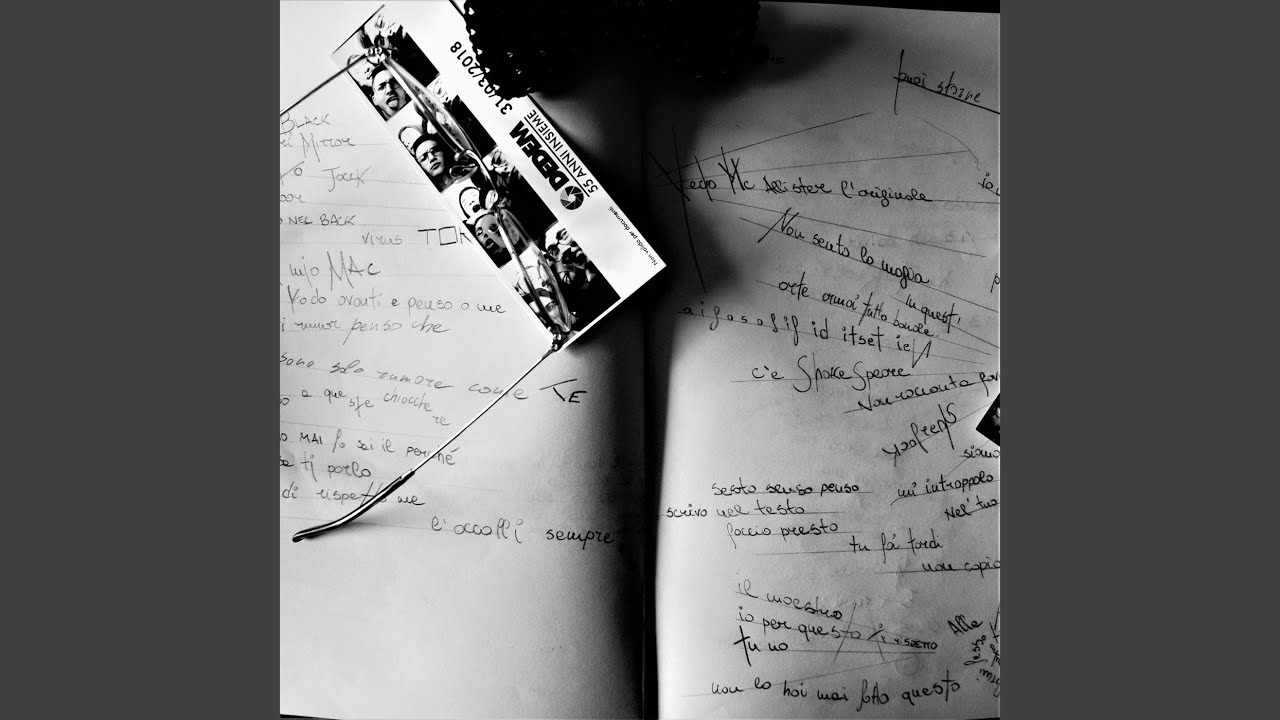 BLACK
Mirror
Jack
NEL BACK
virus TOR
mio MAC
Vado avanti e penso a me
i rumor penso che
sono solo rumore come TE
a queste chiacchere
MAI lo sai il perché
se ti parlo
di rispetto me
l'accolli sempre
31/03/2018
DEDEM
55 ANNI INSIEME
Non valido per documenti
puoi stare
Mc Allister l'originale
io
Non sento la moglia
arte ormai tutto banale
In quest'
aifosolif id itset ieN
c'è ShakeSpeare
Non racconta
siamo
sesto senso penso
mi intrappolo
scrivo nel testo
Nel tuo
faccio presto
tu fai tardi
non copio
il maestro
io per questo ti rispetto
tu no
Alla
non lo hai mai fatto questo